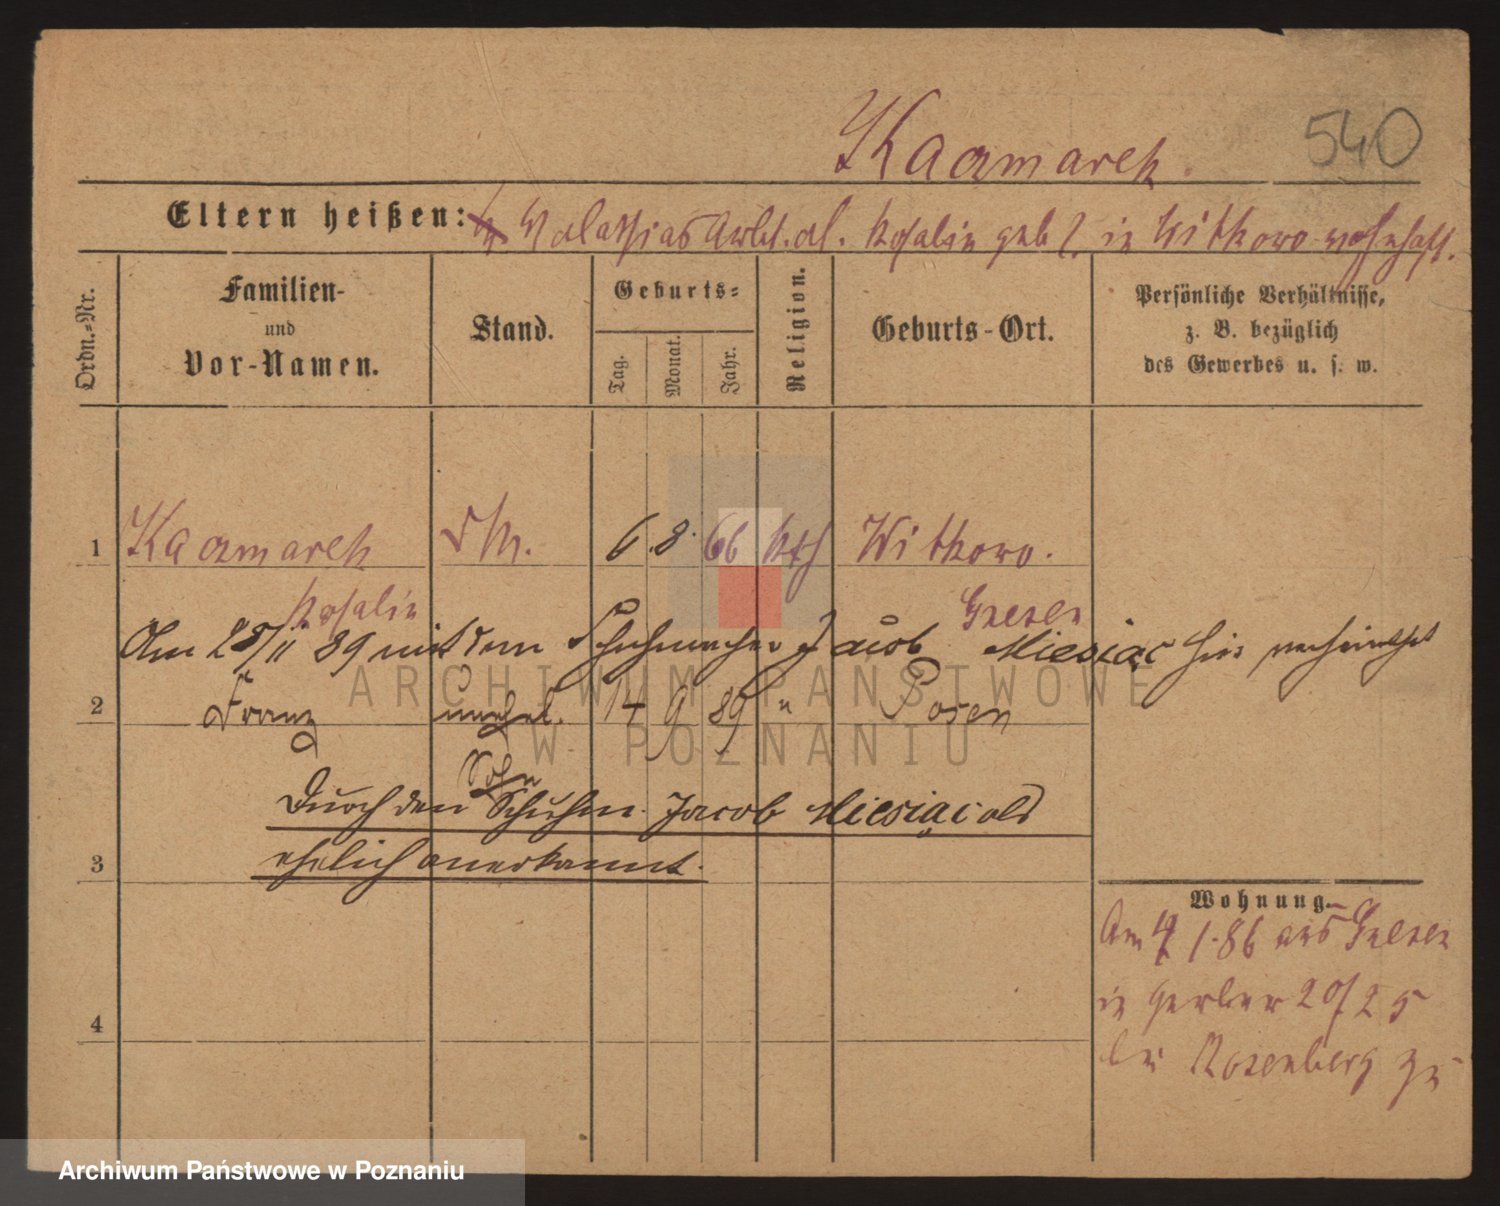 Kaczmarek.
540
Eltern heißen: Valathias Arbt. al. Rosalie geb ?. in Witkowo wohnhaft.
Ordn.-Nr.
Familien-
und
Vor-Namen.
Stand.
Geburts-
Tag.
Monat.
Jahr.
Religion.
Geburts-Ort.
Persönliche Verhältnisse,
z. B. bezüglich
des Gewerbes u. s. w.
1 Kaczmarek 6. 8. 66 kth Witkowo.
Rosalie Gnesen
Am 25/11 89 mit dem Schuhmacher Jacob Miesiąc hier verheirathet
2 Franz unehel. 14 9 89 " Posen
Sohn
Durch den Schuhm. Jacob Miesiąc als
3 ehelich anerkannt.
4
Wohnung.
Am 4/1.86 aus Gnesen
in Gerber 20/25
bei Rosenberg zu
ARCHIWUM PAŃSTWOWE
W POZNANIU
Archiwum Państwowe w Poznaniu